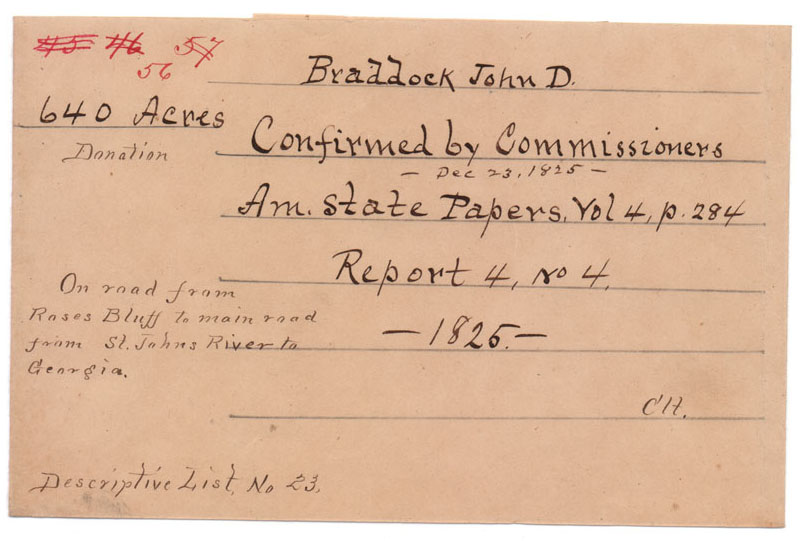 45 46 57
56
Braddock John D.
640 Acres
Donation
Confirmed by Commissioners
— Dec 23, 1825 —
Am. State Papers, Vol 4, p. 284
Report 4, No 4.
— 1825. —
On road from
Roses Bluff to main road
from St. Johns River to
Georgia.
Descriptive List, No 23.